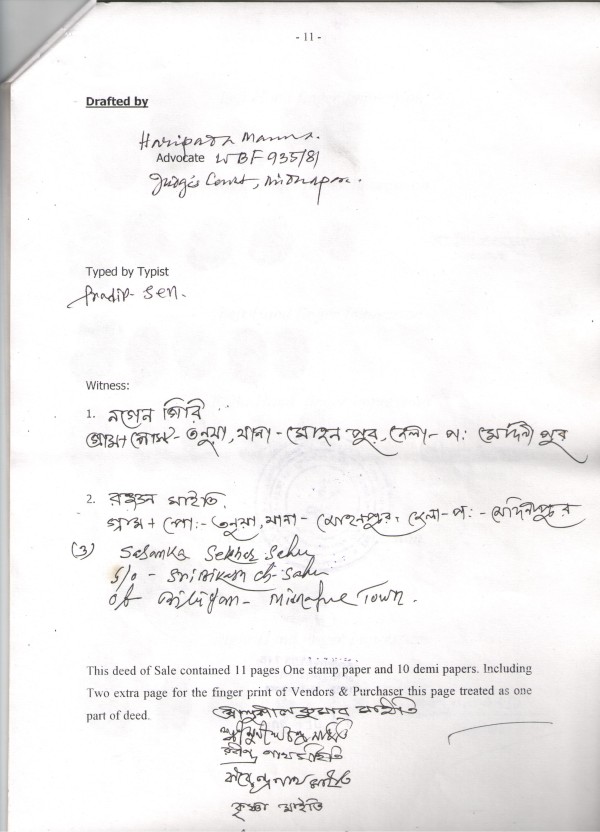 - 11 -
Drafted by
Haripada Manna.
Advocate WBF 935/81
Judge's Court, Midnapore.
Typed by Typist
Pradip Sen.
Witness:
1. নগেন গিরি
গ্রাম+পোস্ট- তনুয়া, থানা - মোহনপুর, জেলা - পঃ মেদিনীপুর
2. মাইতি
গ্রাম + পোঃ- তনুয়া, থানা - মোহনপুর, জেলা - পঃ - মেদিনীপুর
(3) Sasanka Sekhar Sahu
S/o - Sri Ch- Sahu
of - Midnapore Town.
This deed of Sale contained 11 pages One stamp paper and 10 demi papers. Including
Two extra page for the finger print of Vendors & Purchaser this page treated as one
part of deed.
কুমার মাইতি
মাইতি
নাথ মাইতি
নাথ মাইতি
কৃষ্ণা মাইতি